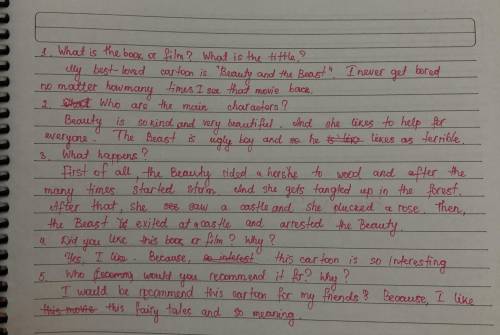 1. What is the book or film? What is the tittle?
My best-loved cartoon is "Beauty and the Beast". I never get bored
no matter how many times I see that movie back.
2. Who are the main charactors?
Beauty is so kind and very beautiful. And she likes to help for
everyone. The Beast is ugly boy and so he likes as terrible.
3. What happens?
First of all, the Beauty rided a horshe to wood and after the
many times started storm. And she gets tangled up in the forest.
After that, she saw a castle and she plucked a rose. Then,
the Beast exited at a castle and arrested the Beauty.
4. Did you like this book or film? Why?
Yes, I like. Because, this cartoon is so interesting
5. Who would you recommend it for? Why?
I would be recommend this cartoon for my friends. Because, I like
this fairy tales and so meaning.